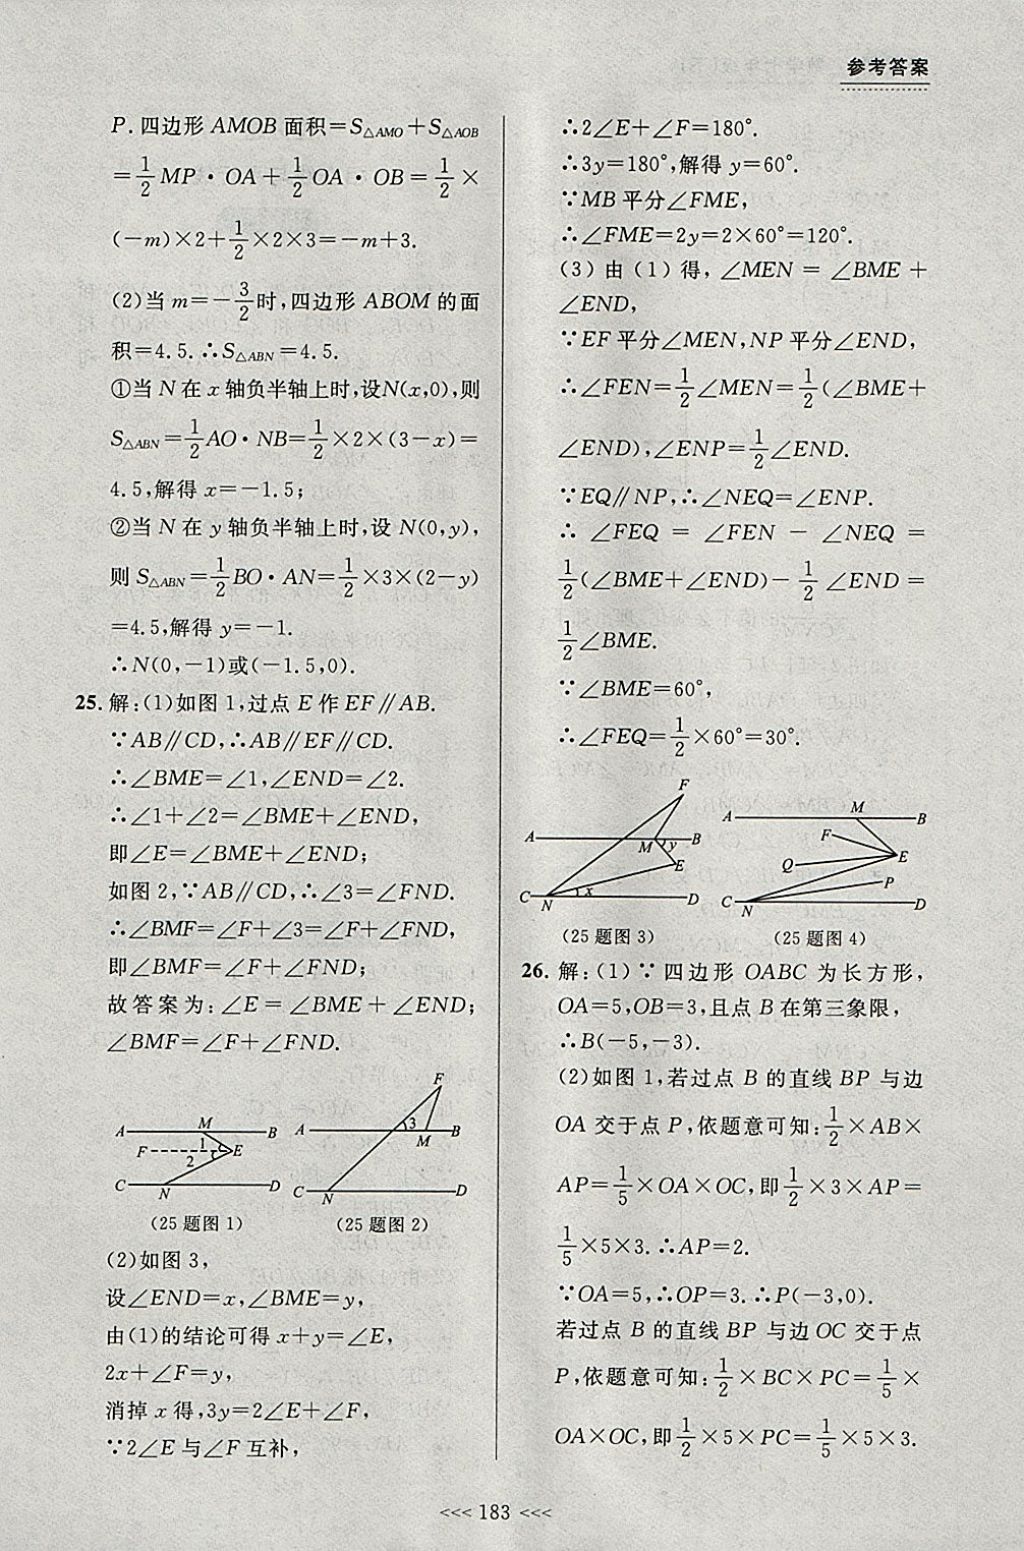 参考答案
P. 四边形 AMOB 面积=S△AMO+S△AOB
=1/2 MP·OA+1/2 OA·OB=1/2×
(-m)×2+1/2×2×3=-m+3.
(2)当 m=-3/2时,四边形 ABOM 的面
积=4.5.∴S△ABN=4.5.
①当 N 在 x 轴负半轴上时,设N(x,0),则
S△ABN=1/2 AO·NB=1/2×2×(3-x)=
4.5,解得 x=-1.5;
②当 N 在 y 轴负半轴上时,设 N(0,y),
则 S△ABN=1/2 BO·AN=1/2×3×(2-y)
=4.5,解得 y=-1.
∴N(0,-1)或(-1.5,0).
25. 解:(1)如图 1,过点 E 作 EF∥AB.
∵AB∥CD,∴AB∥EF∥CD.
∴∠BME=∠1,∠END=∠2.
∴∠1+∠2=∠BME+∠END,
即∠E=∠BME+∠END;
如图 2,∵AB∥CD,∴∠3=∠FND.
∴∠BMF=∠F+∠3=∠F+∠FND,
即∠BMF=∠F+∠FND.
故答案为:∠E=∠BME+∠END;
∠BMF=∠F+∠FND.
A M B
F 1 2 E
C N D
(25题图 1)
F
A 3 M B
C N D
(25题图 2)
(2)如图 3,
设∠END=x,∠BME=y,
由(1)的结论可得 x+y=∠E,
2x+∠F=y,
消掉 x 得,3y=2∠E+∠F,
∵2∠E 与∠F 互补,
∴2∠E+∠F=180°.
∴3y=180°,解得 y=60°.
∵MB 平分∠FME,
∴∠FME=2y=2×60°=120°.
(3) 由 (1) 得, ∠MEN = ∠BME +
∠END,
∵EF 平分∠MEN,NP 平分∠END,
∴∠FEN=1/2∠MEN=1/2(∠BME+
∠END),∠ENP=1/2∠END.
∵EQ∥NP,∴∠NEQ=∠ENP.
∴ ∠FEQ = ∠FEN - ∠NEQ =
1/2(∠BME+∠END)-1/2∠END=
1/2∠BME.
∵∠BME=60°,
∴∠FEQ=1/2×60°=30°.
F
A M y B
E
C N x D
(25题图 3)
A M B
F
Q E
P
C N D
(25题图 4)
26. 解:(1)∵四边形 OABC 为长方形,
OA=5,OB=3,且点 B 在第三象限,
∴B(-5,-3).
(2)如图 1,若过点 B 的直线 BP 与边
OA 交于点 P,依题意可知:1/2×AB×
AP=1/5×OA×OC,即1/2×3×AP=
1/5×5×3.∴AP=2.
∵OA=5,∴OP=3.∴P(-3,0).
若过点 B 的直线 BP 与边 OC 交于点
P,依题意可知:1/2×BC×PC=1/5×
OA×OC,即1/2×5×PC=1/5×5×3.
<<< 183 <<<